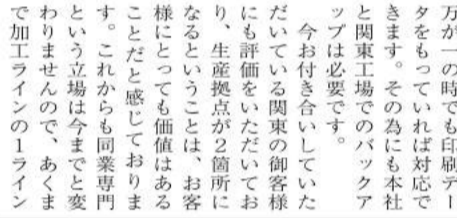 万が一の時でも印刷デー
タをもっていれば対応で
きます。その為にも本社
と関東工場でのバックア
ップは必要です。
今お付き合いしていた
だいている関東の御客様
にも評価をいただいてお
り、生産拠点が2箇所に
なるということは、お客
様にとっても価値はある
ことだと感じておりま
す。これからも同業専門
という立場は今までと変
わりませんので、あくま
で加工ラインの1ライン